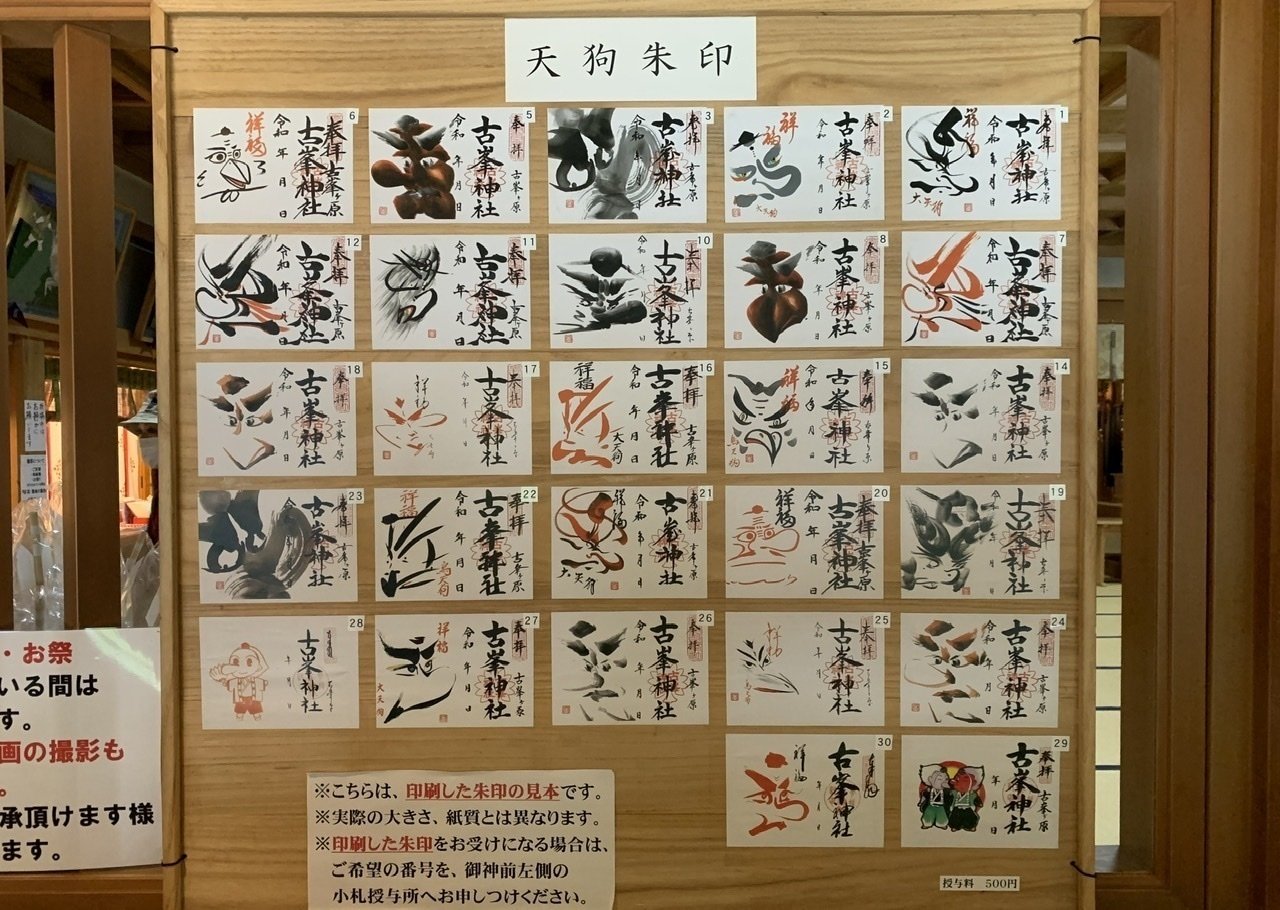 天狗朱印
1
奉拝
古峯ヶ原
古峯神社
令和 年 月 日
祥福
大天狗
2
奉拝
古峯ヶ原
古峯神社
令和 年 月 日
祥福
大天狗
3
奉拝
古峯ヶ原
古峯神社
令和 年 月 日
5
奉拝
古峯ヶ原
古峯神社
令和 年 月 日
6
奉拝 古峯ヶ原
古峯神社
令和 年 月 日
祥福
7
奉拝
古峯ヶ原
古峯神社
令和 年 月 日
8
奉拝
古峯ヶ原
古峯神社
令和 年 月 日
10
奉拝
古峯ヶ原
古峯神社
令和 年 月 日
11
奉拝
古峯ヶ原
古峯神社
令和 年 月 日
12
奉拝
古峯ヶ原
古峯神社
令和 年 月 日
14
奉拝
古峯ヶ原
古峯神社
令和 年 月 日
15
奉拝
古峯ヶ原
古峯神社
令和 年 月 日
祥福
烏天狗
16
奉拝
古峯ヶ原
古峯神社
令和 年 月 日
祥福
大天狗
17
奉拝
古峯神社
令和 年 月 日
祥福
18
奉拝
古峯ヶ原
古峯神社
令和 年 月 日
19
奉拝
古峯ヶ原
古峯神社
令和 年 月 日
20
奉拝 古峯ヶ原
古峯神社
令和 年 月 日
祥福
21
奉拝
古峯ヶ原
古峯神社
令和 年 月 日
祥福
大天狗
22
奉拝
古峯ヶ原
古峯神社
令和 年 月 日
祥福
烏天狗
23
奉拝
古峯ヶ原
古峯神社
令和 年 月 日
24
奉拝
古峯ヶ原
古峯神社
令和 年 月 日
25
奉拝
古峯神社
令和 年 月 日
祥福
烏天狗
26
奉拝
古峯ヶ原
古峯神社
令和 年 月 日
27
奉拝
古峯ヶ原
古峯神社
令和 年 月 日
祥福
大天狗
28
古峯神社
年 月 日
29
奉拝
古峯ヶ原
古峯神社
年 月 日
30
古峯神社
年 月 日
祥福
※こちらは、印刷した朱印の見本です。
※実際の大きさ、紙質とは異なります。
※印刷した朱印をお受けになる場合は、
ご希望の番号を、御神前左側の
小札授与所へお申しつけください。
授与料 500円
・お祭
いる間は
す。
画の撮影も
。
承頂けます様
ます。